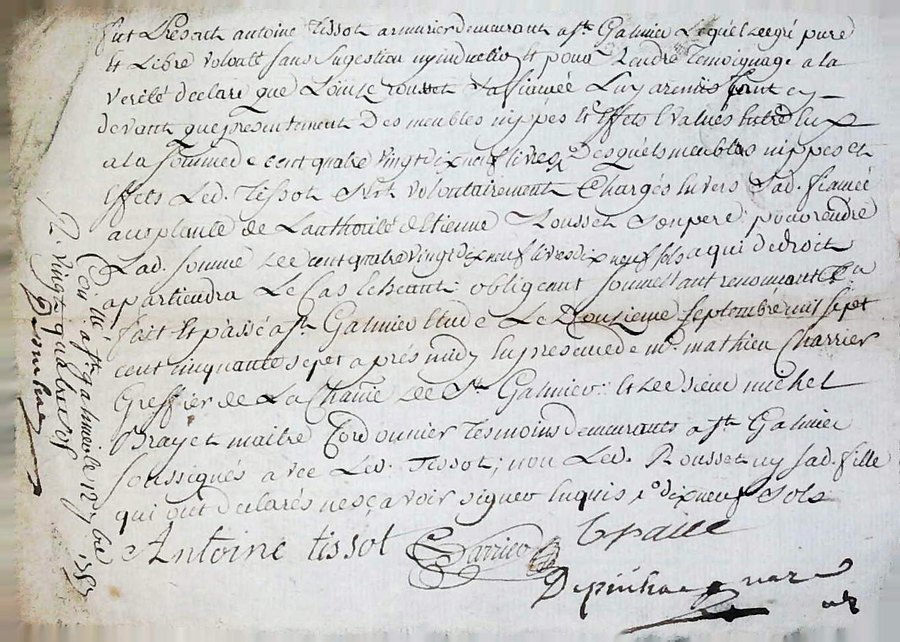 fut Present antoine Tissot armurier demeurant a St. Galmier Lequel de gré pure
et Libre volonté sans sugestion ny induction et pour rendre temoignage a la
verité declare que Louise rousset sa fiancée Luy a remis tant cy
devant que presentement Des meubles nippes et Effets Evalués Entre Eux
a la somme de cent quatre vingt dix neuf livres Desquels meubles nippes et
Effets Led. Tissot s'est volontairement Chargés Envers Sad. fiancée
au plaute de L'authorité d'Etienne Rousset son pere pour rendre
Lad. somme de cent quatre vingt dix neuf livres dix neuf sols a qui de droit
apartiendra Le Cas Echeant obligeant soumettant renonceant
fait Et passé a St. Galmier Etude Le Douzieme Septembre mil sept
cent cinquante sept apres midy En presence de me. mathieu Charrier
Greffier de La Chatnie de St. Galmier et de sieur michel
Brayet maitre Cordonnier Temoins demeurants a St. Galmier
soussignés avec Led. Tissot, non Led. Rousset ny sad. fille
qui ont declarés ne sçavoir signer Enquis io. dix neuf Sols
Antoine tissot Charrier Brayet
Depinhac
Con.lé a St. galmier le 12 7bre 1757
R. vingt quatre sols
Depinhac